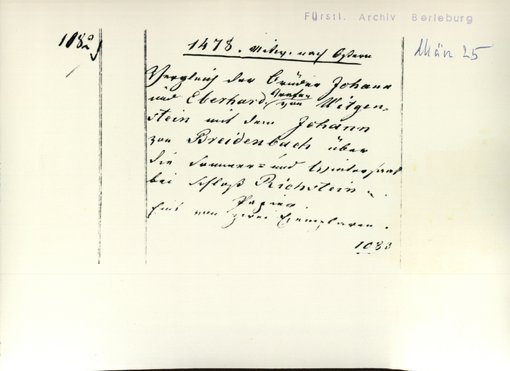 Fürstl. Archiv Berleburg
1182
März 25
1478. Mitw. nach Ostern
Vergleich der Brüder Johann
und Eberhard Grafen von Witgen-
stein mit dem Johann
von Breidenbach über
die Sommer- und Wintersaat
bei Schloß Richstein.
Papier
Eins von zwei Exemplaren.
1083